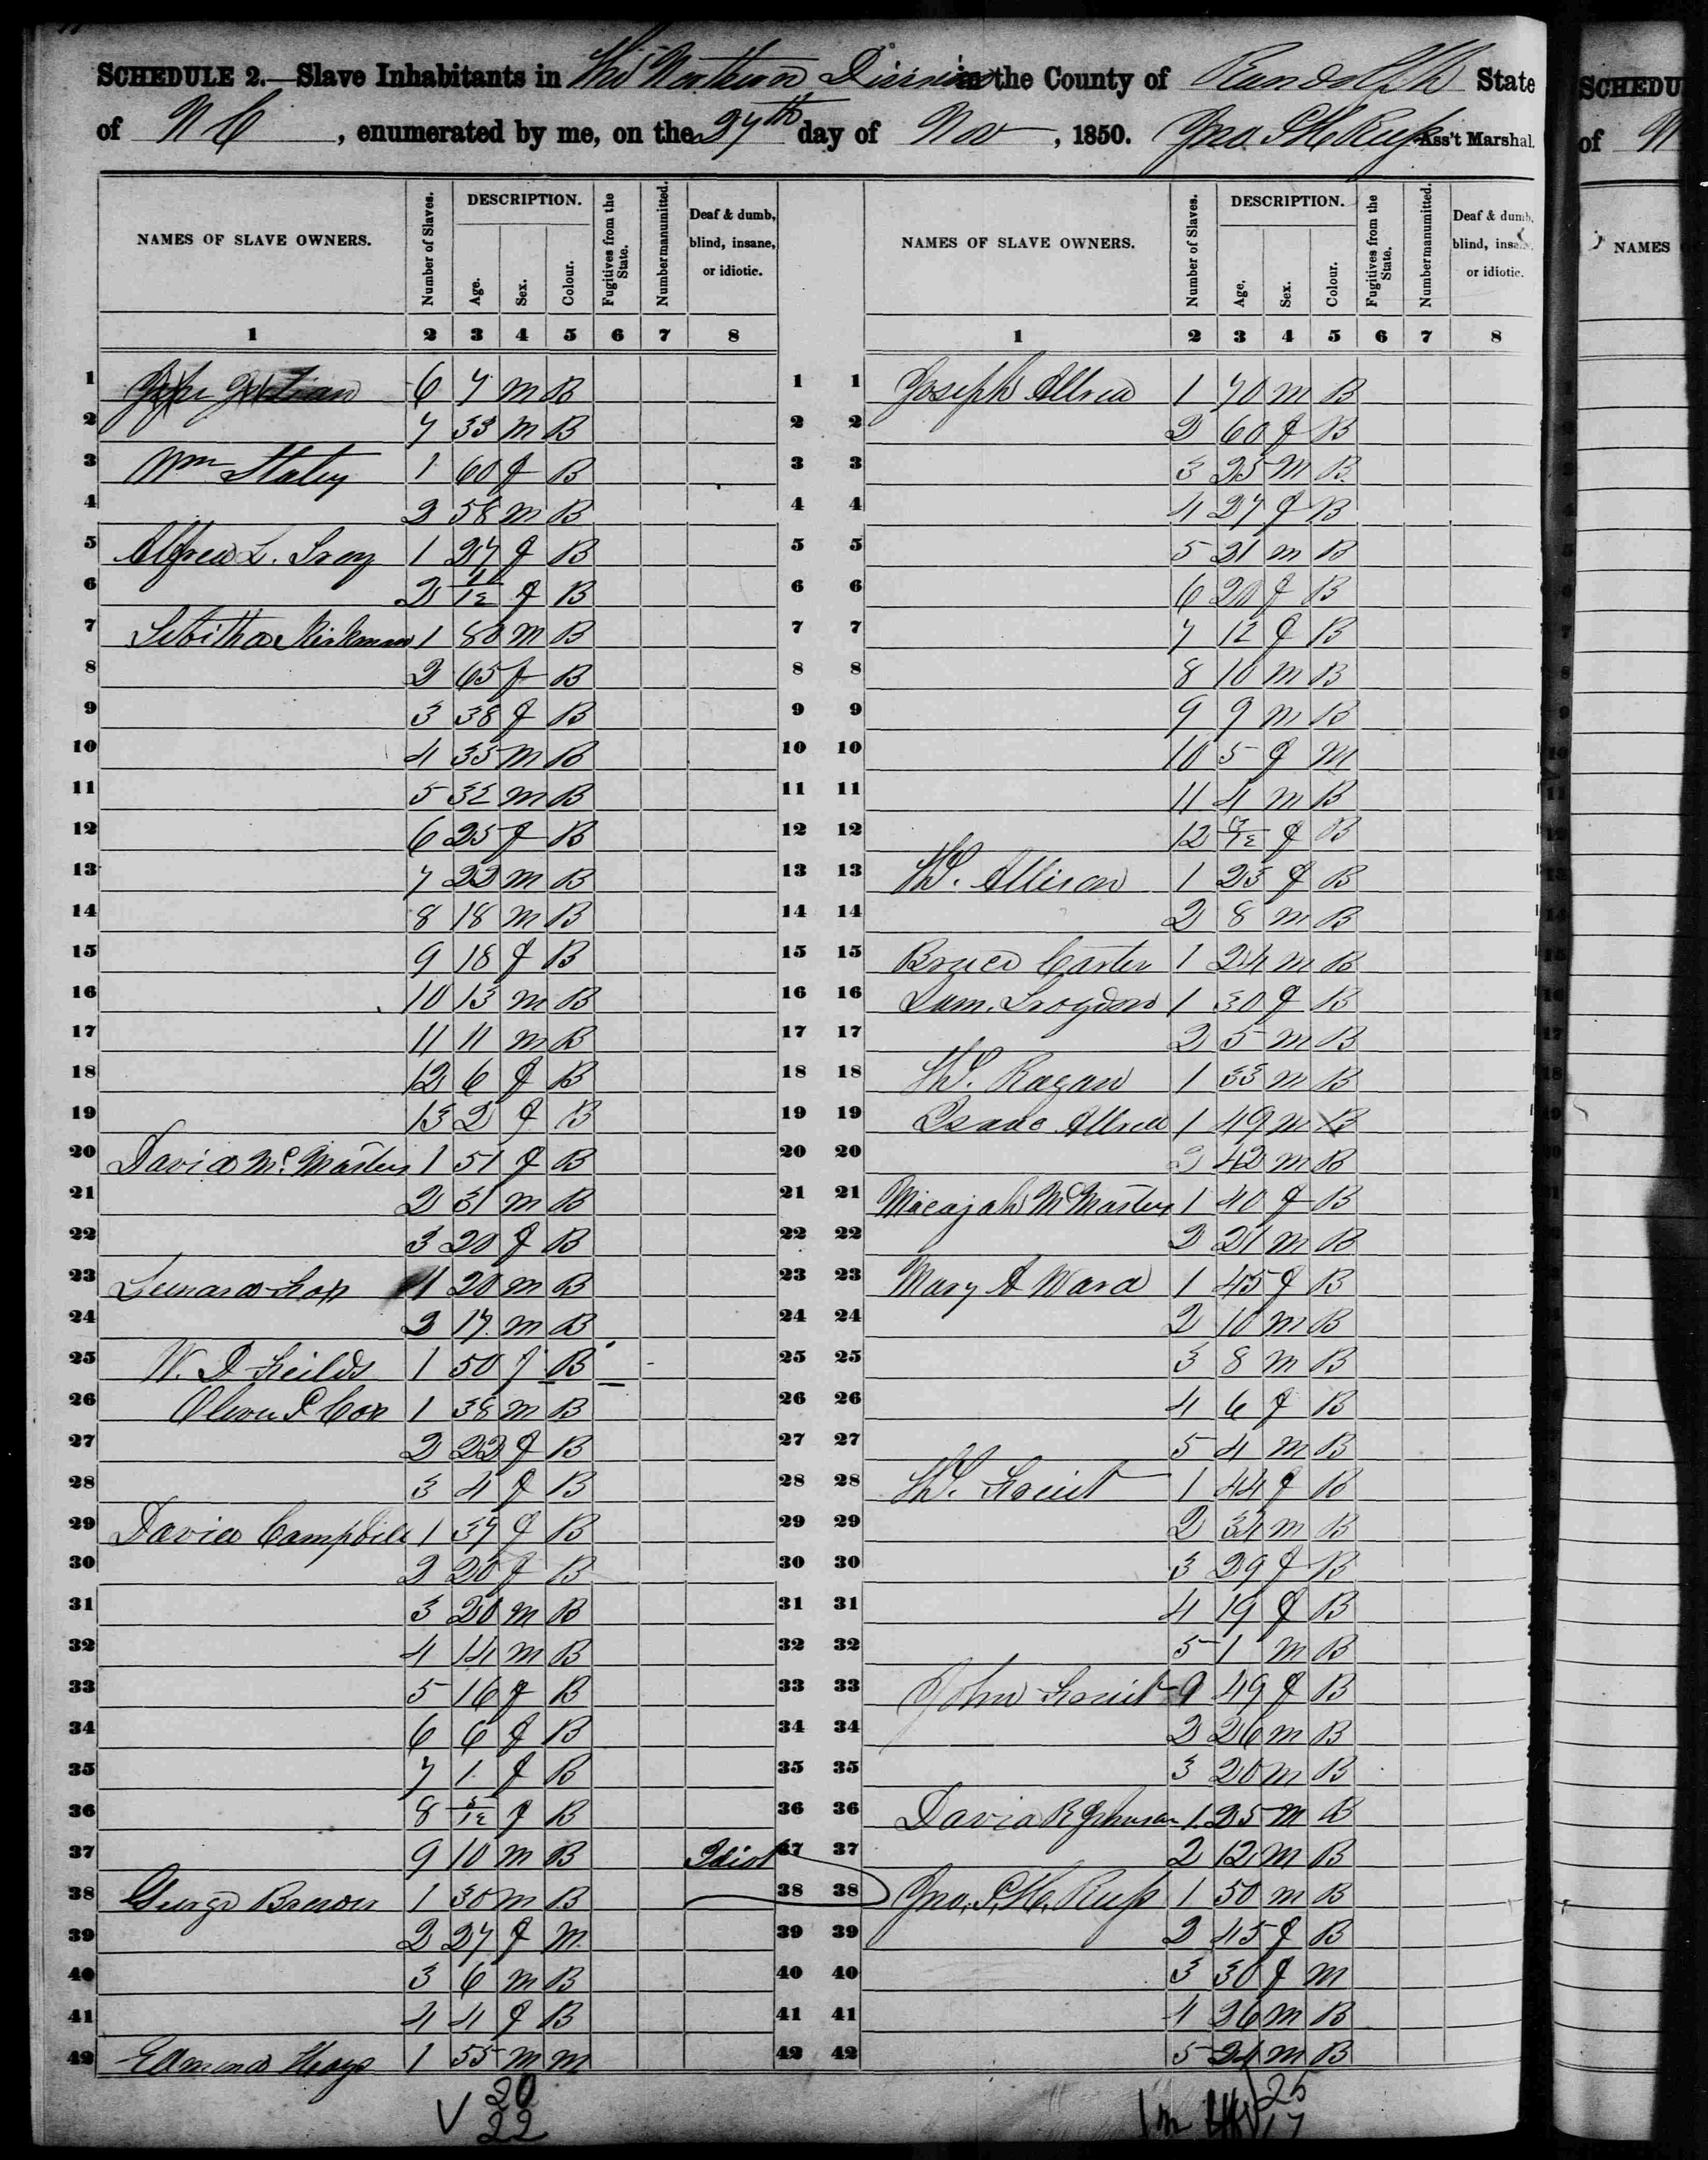 SCHEDULE 2.—Slave Inhabitants in the Northern Division in the County of Randolph State
of N C, enumerated by me, on the 27th day of Nov, 1850. Ass't Marshal.
NAMES OF SLAVE OWNERS. Number of Slaves. DESCRIPTION. Age. Sex. Colour. Fugitives from the State. Number manumitted. Deaf & dumb, blind, insane, or idiotic.
1 2 3 4 5 6 7 8
1 6 7 m B
2 7 33 m B
3 Wm Staley 1 60 f B
4 2 58 m B
5 Alfred L. Troy 1 27 f B
6 2 /12 f B
7 Kirkman 1 80 m B
8 2 65 f B
9 3 38 f B
10 4 35 m B
11 5 32 m B
12 6 25 f B
13 7 22 m B
14 8 18 m B
15 9 18 f B
16 10 13 m B
17 11 11 m B
18 12 6 f B
19 13 2 f B
20 David McMasters 1 51 f B
21 2 31 m B
22 3 20 f B
23 1 20 m B
24 2 17 m B
25 W. D Feilds 1 50 f B
26 Oliver P Cox 1 38 m B
27 2 22 f B
28 3 4 f B
29 David Campbell 1 37 f B
30 2 20 f B
31 3 20 m B
32 4 14 m B
33 5 16 f B
34 6 6 f B
35 7 1 f B
36 8 5/12 f B
37 9 10 m B Idiot
38 George Brower 1 30 m B
39 2 27 f M
40 3 6 m B
41 4 4 f B
42 Edmund Hays 1 55 m M
20
22
NAMES OF SLAVE OWNERS. Number of Slaves. DESCRIPTION. Age. Sex. Colour. Fugitives from the State. Number manumitted. Deaf & dumb, blind, insane, or idiotic.
1 2 3 4 5 6 7 8
1 Joseph Allred 1 70 m B
2 2 60 f B
3 3 25 m B
4 4 27 f B
5 5 21 m B
6 6 20 f B
7 7 12 f B
8 8 10 m B
9 9 9 m B
10 10 5 f M
11 11 4 m B
12 12 /12 f B
13 Allison 1 23 f B
14 2 8 m B
15 Carter 1 24 m B
16 Sam. Trogdon 1 30 f B
17 2 5 m B
18 Ragan 1 33 m B
19 Isaac Allred 1 49 m B
20 2 42 m B
21 Micajah McMasters 1 40 f B
22 2 21 m B
23 Mary A Ward 1 45 f B
24 2 10 m B
25 3 8 m B
26 4 6 f B
27 5 4 m B
28 Foust 1 44 f B
29 2 34 m B
30 3 29 f B
31 4 19 f B
32 5 1 m B
33 John Foust 49 f B
34 2 26 m B
35 3 20 m B
36 David R Johnson 1 25 m B
37 2 12 m B
38 1 50 m B
39 2 45 f B
40 3 30 f M
41 4 26 m B
42 5 24 m B
25
17
SCHEDU
of N
NAMES